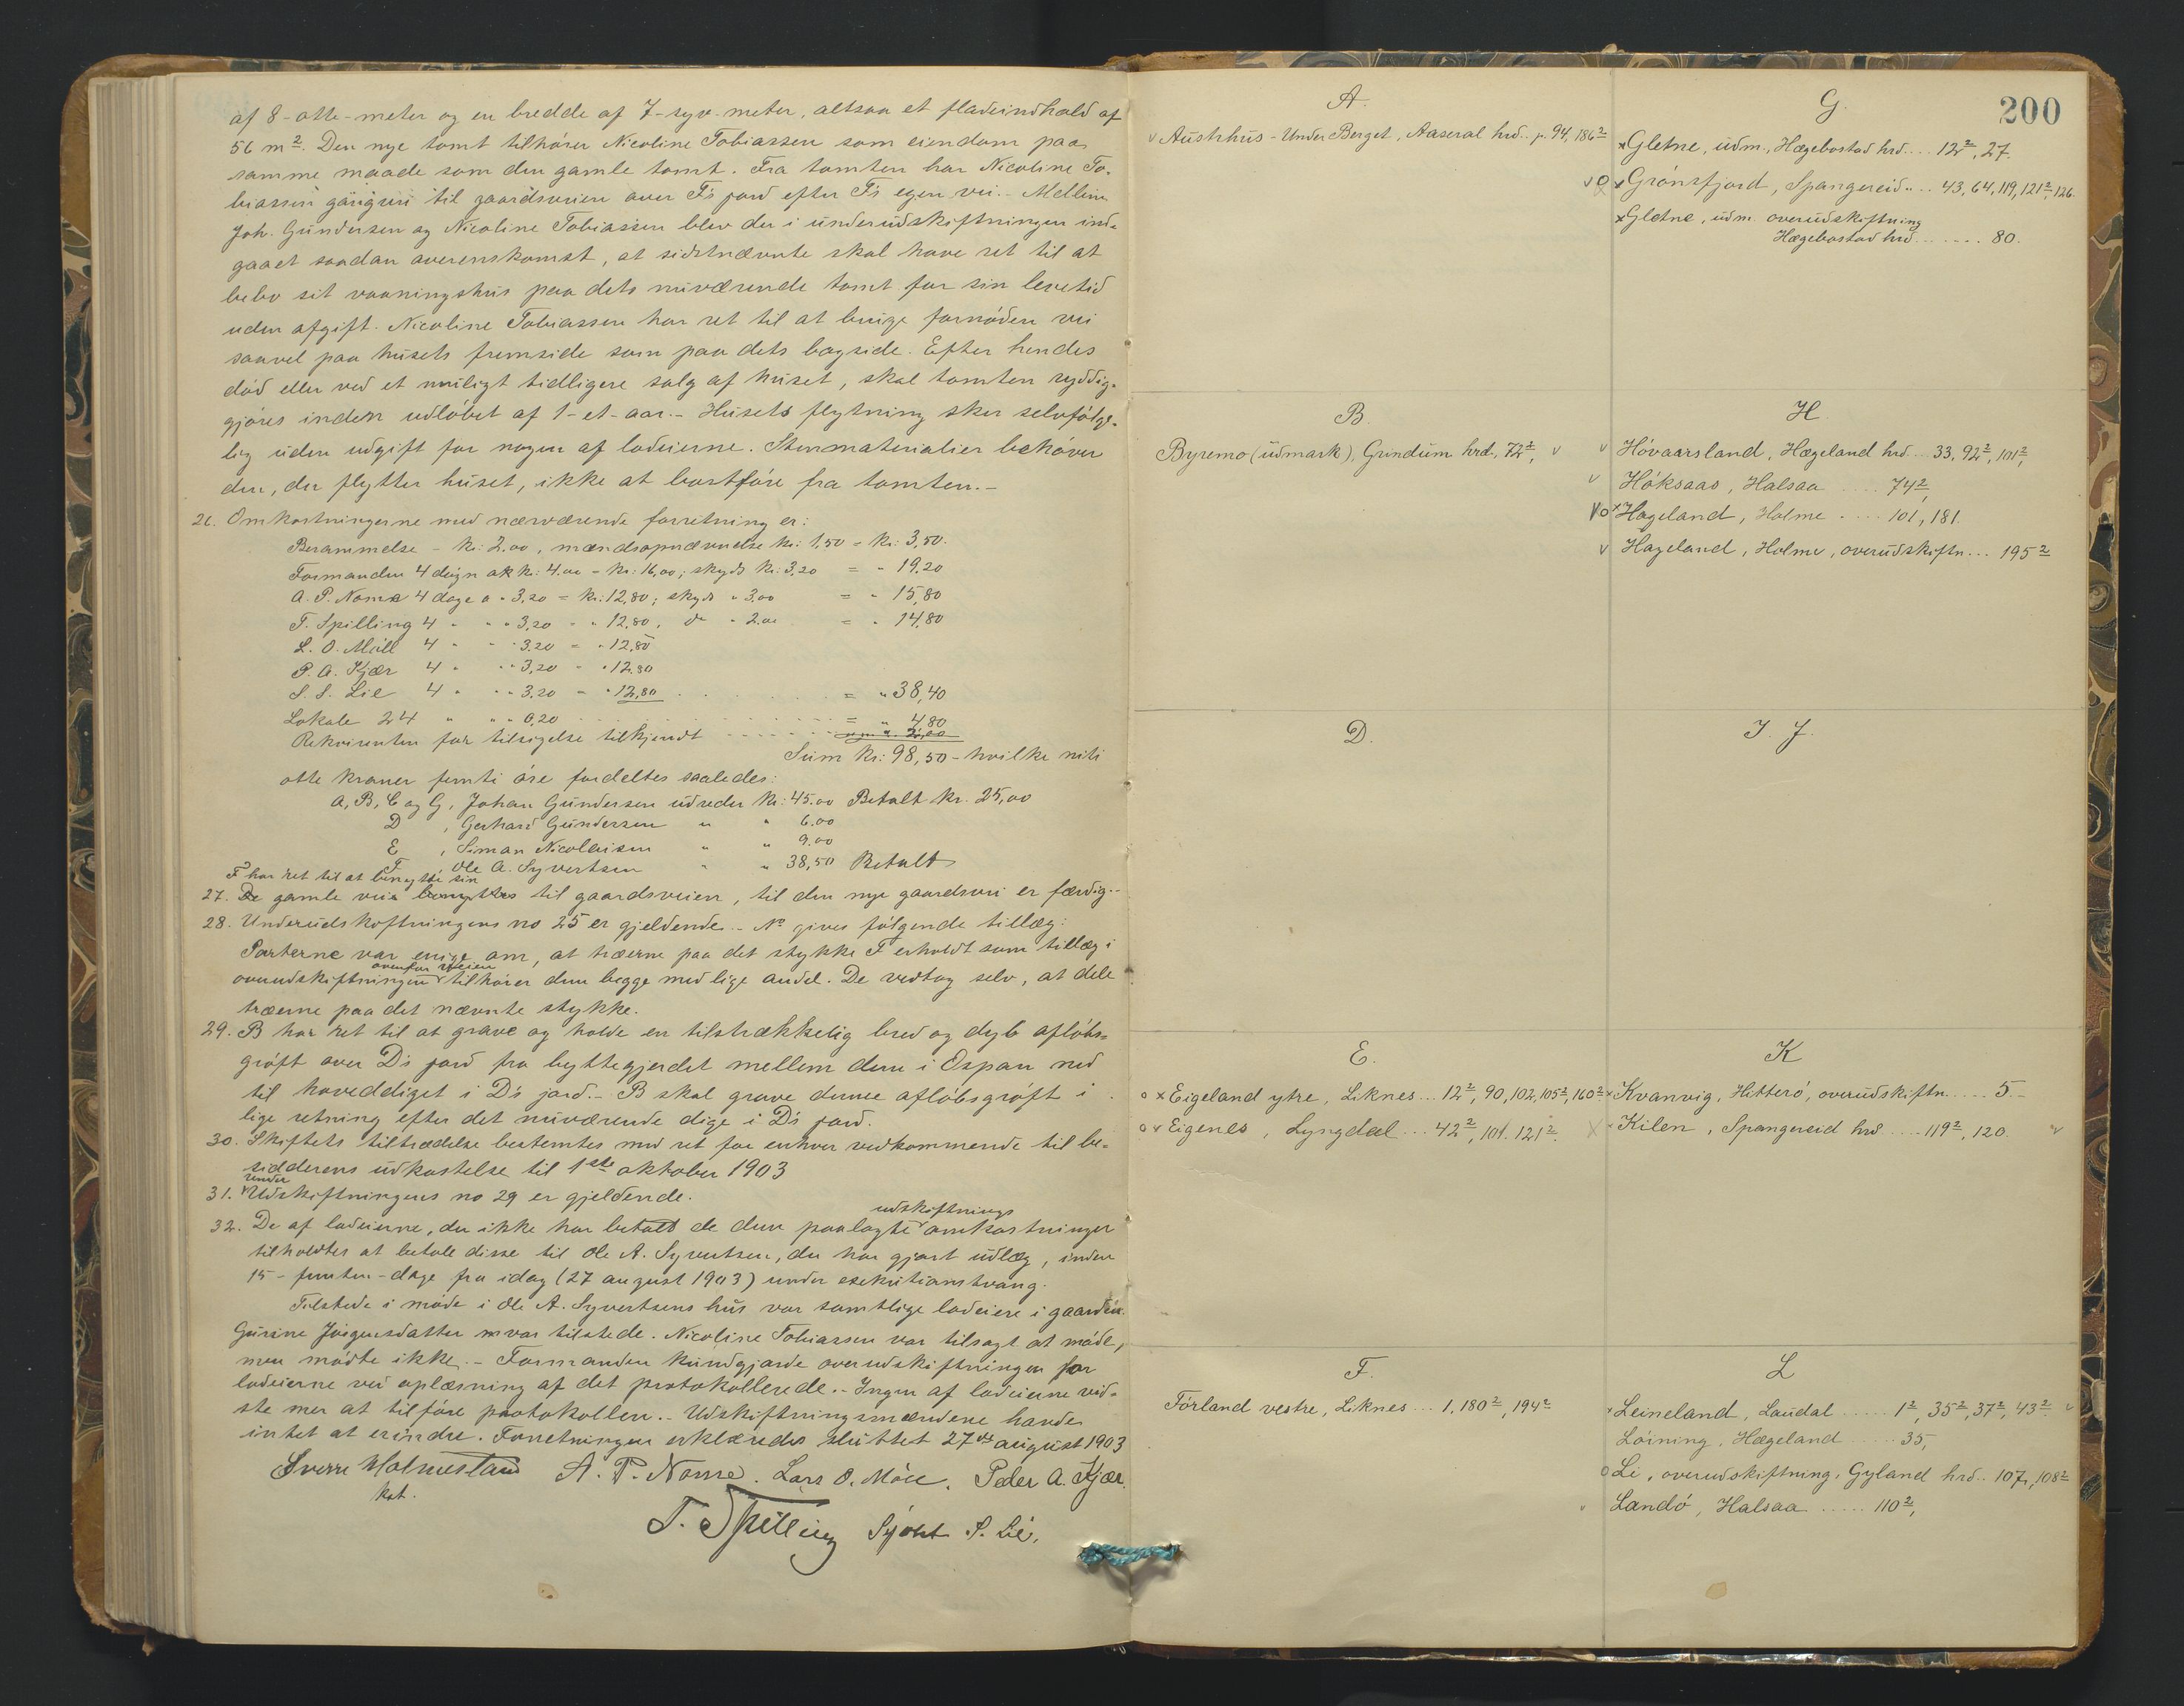 af 8-otte-meter og en bredde af 7-syv-meter, altsaa et fladeindhold af
56 m². Den nye tomt tilhører Nicoline Tobiassen som eiendom paa
samme maade som den gamle tomt. Fra tomten har Nicoline To-
biassen gangvei til gaardsveien over F's jord efter F's egen vei. - Mellem
Joh. Gundersen og Nicoline Tobiassen blev der i underudskiftningen ind-
gaaet saadan overenskomst, at sidstnævnte skal have ret til at
bebo sit vaaningshus paa dets nuværende tomt for sin levetid
uden afgift. Nicoline Tobiassen har ret til at bruge fornøden vei
saavel paa husets fremside som paa dets bagside. Efter hendes
død eller ved et muligt tidligere salg af huset, skal tomten ryddig-
gjøres inden udløbet af 1-et-aar. - Husets flytning sker selvfølge-
lig uden udgift for nogen af lodeierne. Stenmaterialier behøver
den, der flytter huset, ikke at bortføre fra tomten. -
26. Omkostningerne med nærværende forretning er:
Berammelse - kr: 2.00, mændsopnævnelse kr: 1,50 = kr: 3,50.
Formanden 4 døgn a kr: 4.00 - kr: 16,00; skyds kr: 3,20 = " 19.20
A. P. Nome 4 dage a " 3,20 = kr: 12,80; skyds " 3.00 = " 15,80
T. Spilling 4 " " " 3,20 = " 12,80, do " 2.00 = " 14,80
L. O. Møll 4 " " " 3.20 = " 12,80
P. A. Kjær 4 " " " 3,20 = " 12.80
S. S. Lie 4 " " " 3,20 = " 12,80 . . . = " 38,40
Lokale 24 " " " 0,20 . . . = " 4,80
Rekvirenten for tilsigelse tilkjendt . . . " 2,00
Sum kr: 98,50 - hvilke niti
otte kroner femti øre fordeltes saaledes:
A, B, C og G, Johan Gundersen udreder kr: 45.00 Betalt kr. 25,00
D , Gerhard Gundersen " " 6.00
E , Siman Nicolaisen " " 9.00
F , Ole A. Syvertsen " " 38,50 Betalt
F har ret til at benytte sin
27. De gamle veie benyttes til gaardsveien, til den nye gaardsvei er færdig. -
28. Underudskiftningens no 25 er gjeldende. - No gives følgende tillæg:
Parterne var enige om, at træerne paa det stykke F erholdt som tillæg i
ovenfor veien
overudskiftningen tilhører dem begge med lige andel. De vedtog selv, at dele
træerne paa det nævnte stykke.
29. B har ret til at grave og holde en tilstrækkelig bred og dyb afløbs-
grøft over D's jord fra byttegjerdet mellem dem i Ospan ned
til hoveddiget i D's jord. - B skal grave denne afløbsgrøft i
lige retning efter det nuværende dige i D's jord.
30. Skiftets tiltrædelse bestemtes med ret for enhver vedkommende til be-
sidderens udkastelse til 1ste oktober 1903
under
31. Udskiftningens no 29 er gjeldende.
udskiftnings
32. De af lodeierne, der ikke har betalt de dem paalagte omkostninger
tilholdtes at betale disse til Ole A. Syvertsen, der har gjort udlæg, inden
15-femten-dage fra idag (27 august 1903) under exekutionstvang.
Tilstede i møde i Ole A. Syvertsens hus var samtlige lodeiere i gaarden.
Gurine Jørgensdatter var tilstede. Nicoline Tobiassen var tilsagt at møde,
men mødte ikke. - Formanden kundgjorde overudskiftningen for
lodeierne ved oplæsning af det protokollerede. - Ingen af lodeierne vid-
ste mer at tilføre protokollen. - Udskiftningsmændene havde
intet at erindre. Forretningen erklæredes sluttet 27de august 1903
Sverre Holmesland A. P. Nome. Lars O. Møll. Peder A. Kjær.
kst.
T. Spilling Sjøvt S. Lie,
200
A.
v Austrhus - Under Berget, Aaseral hrd. p. 94, 186²
B.
Byremo (udmark), Grindum hrd., 72², v
D.
E.
o x Eigeland ytre, Liknes ... 12², 90, 102, 105², 160²
o v Eigenes, Lyngdal ... 42², 101. 121².
F.
Førland vestre, Liknes ... 1, 180², 194²
G.
x Gletne, udm., Hægebostad hrd. ... 12², 27.
v o x Grønsfjord, Spangereid " ... 43, 64, 119, 121², 126.
x Gletne, udm. overudskiftning
Hægebostad hrd. ...... 80.
H.
v Hóvaarsland, Hægeland hrd. ... 33, 92², 101²,
v Høksaas, Halsaa .... 74²,
v o x Hageland, Holme .... 101, 181.
v Hageland, Holme, overudskiftn. ... 195²
I. J.
K
x Kvanvig, Hitterø, overudskiftn. .... 5 -
x Kilen, Spangereid hrd .... 119², 120. v
L
x Leineland, Laudal ..... 1², 35², 37², 43². v
Løining, Hægeland ..... 35,
o Li, overudskiftning, Gyland hrd.. 107, 108²
v Landø, Halsaa ..... 110²,